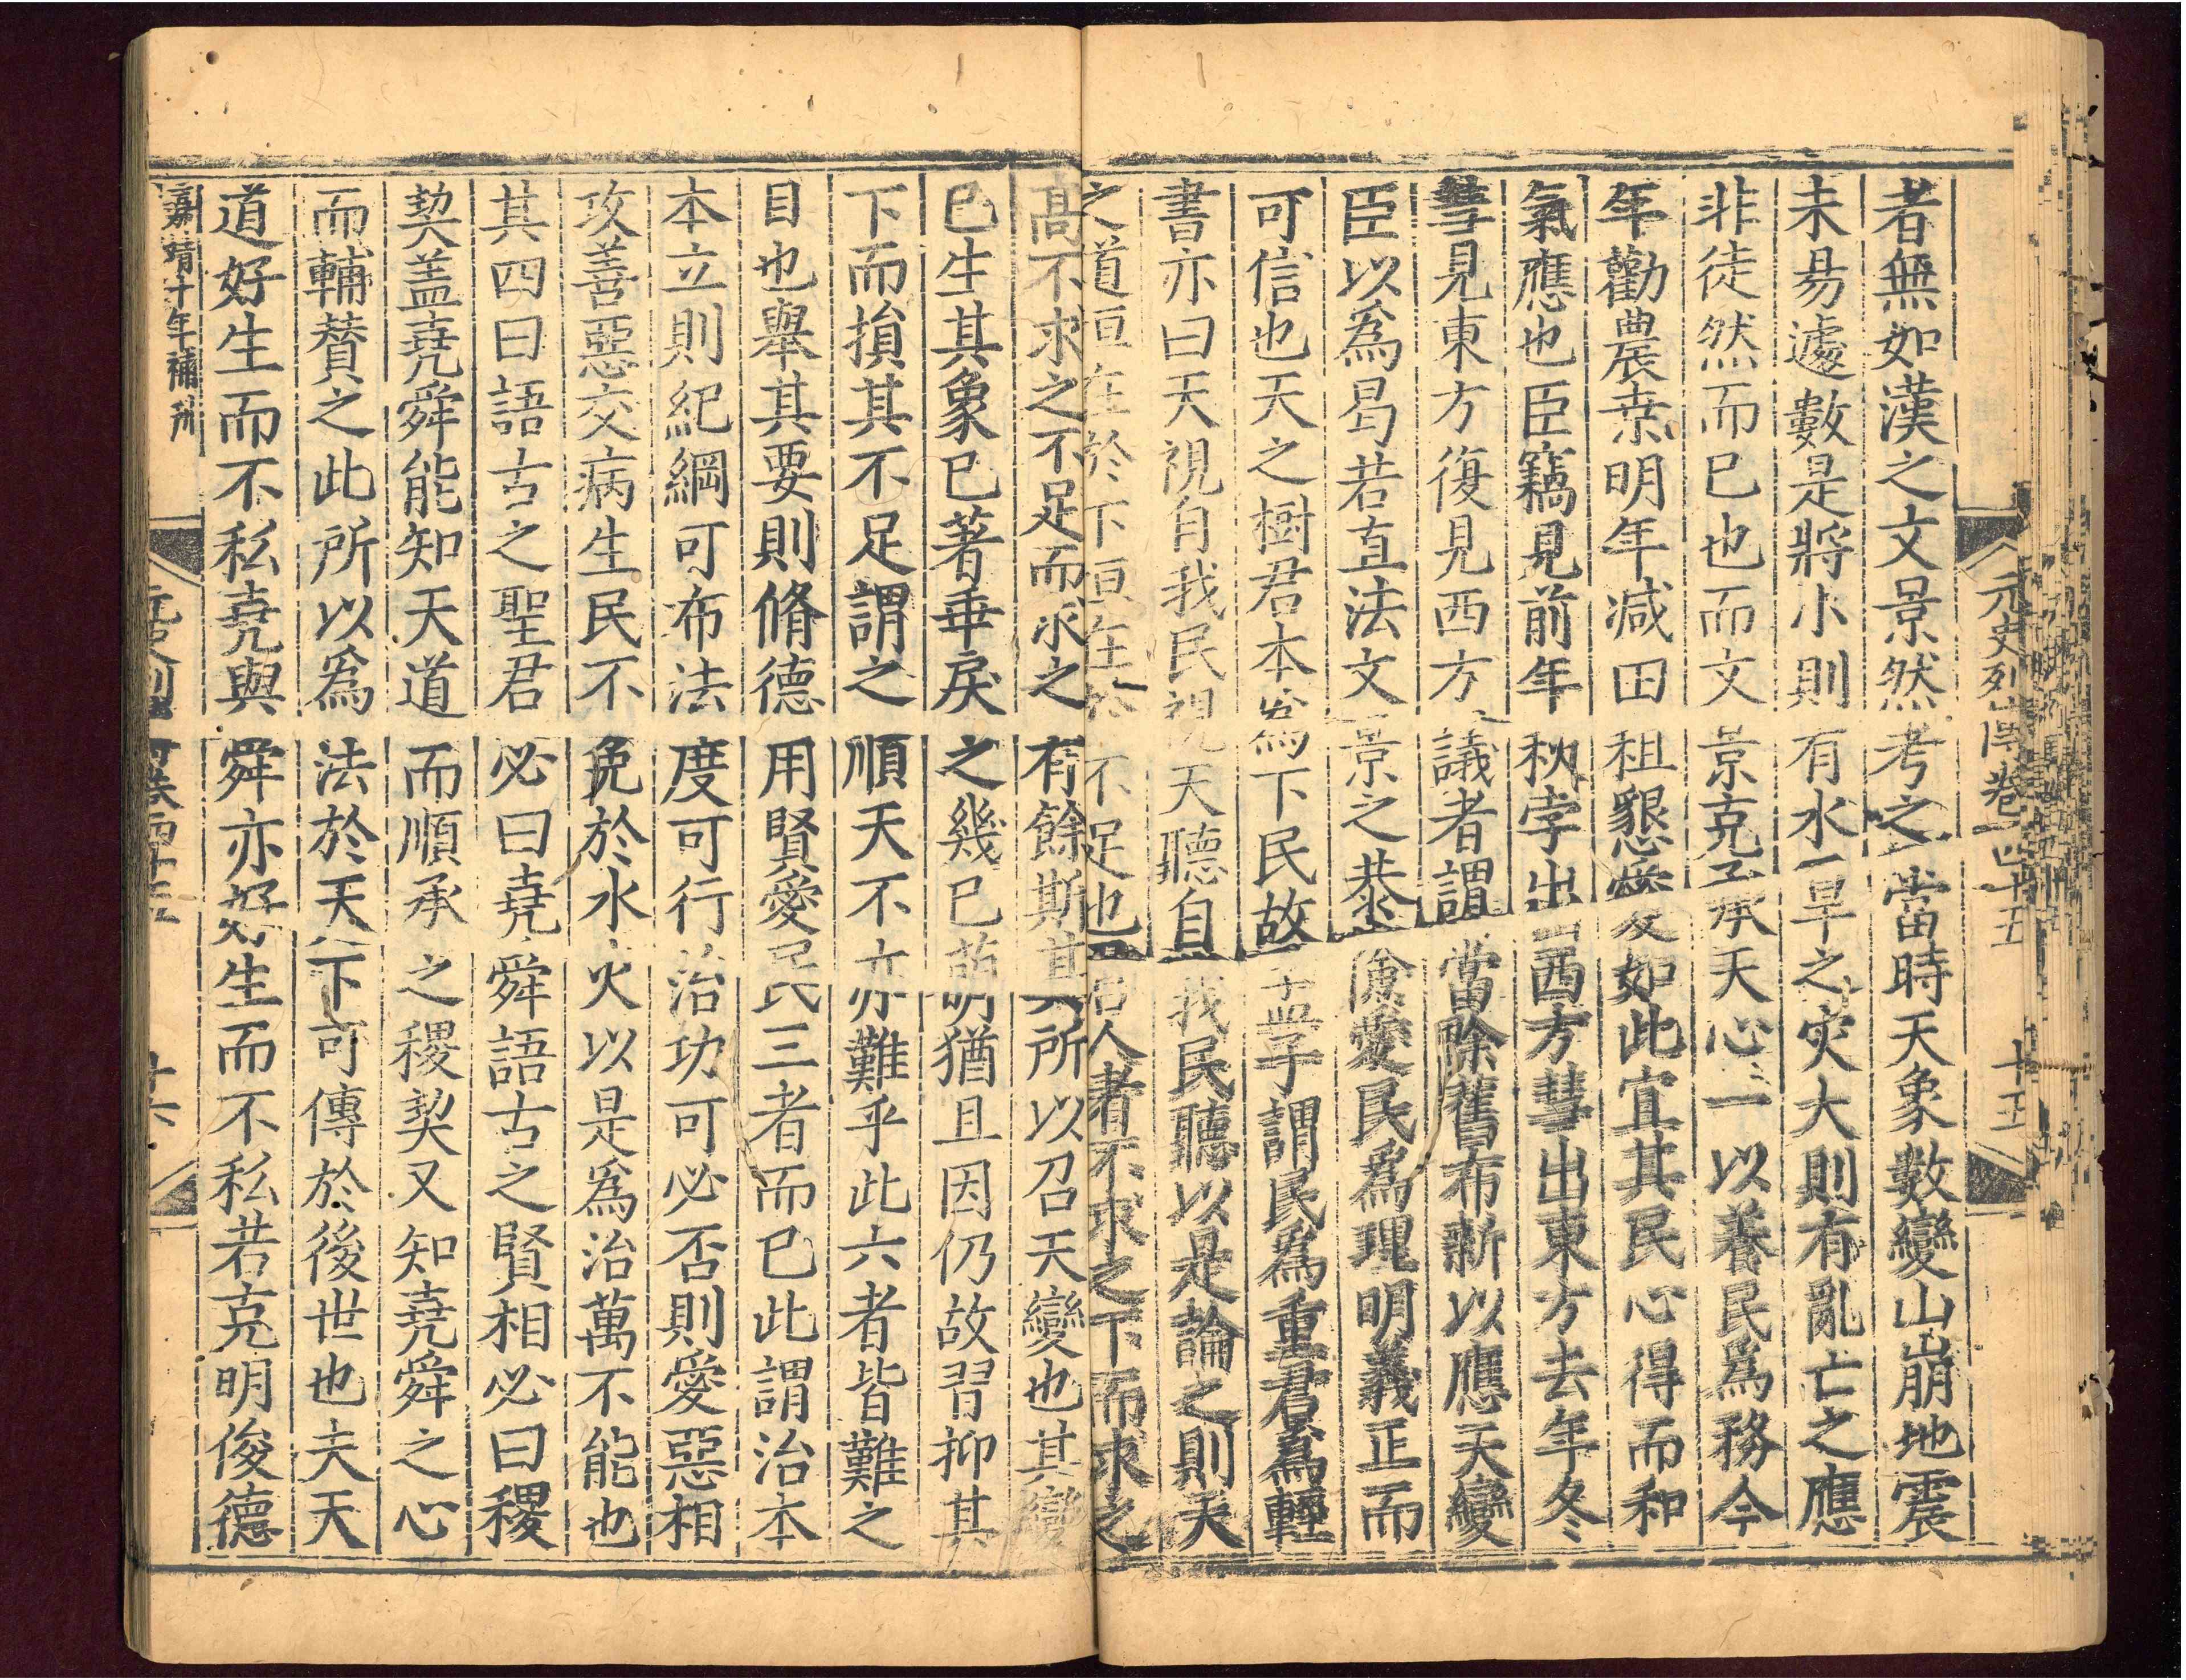 元史列傳卷四十五
十五
者無如漢之文景然考之當時天象數變山崩地震
未易遽數是將小則有水旱之灾大則有亂亡之應
非徒然而已也而文景克承天心一以養民為務今
年勸農桒明年减田租懇愛如此宜其民心得而和
氣應也臣竊見前年秋孛出西方彗出東方去年冬
彗見東方復見西方議者謂當除舊布新以應天變
臣以為曷若直法文景之恭儉愛民為理明義正而
可信也天之樹君本為下民故孟子謂民為重君為輕
書亦曰天視自我民視天聽自我民聽以是論之則天
之道恒在於下恒在於不足也君人者不求之下而求之
高不求之不足而求之有餘斯其所以召天變也其變
已生其象已著垂戾之幾已萌猶且因仍故習抑其
下而損其不足謂之順天不亦難乎此六者皆難之
目也舉其要則脩德用賢愛民三者而已此謂治本
本立則紀綱可布法度可行治功可必否則愛惡相
攻善惡交病生民不免於水火以是為治萬不能也
其四曰語古之聖君必曰堯舜語古之賢相必曰稷
契盖堯舜能知天道而順承之稷契又知堯舜之心
而輔賛之此所以為法於天下可傳於後世也夫天
道好生而不私堯與舜亦好生而不私若克明俊德
嘉靖十年補刊
十六